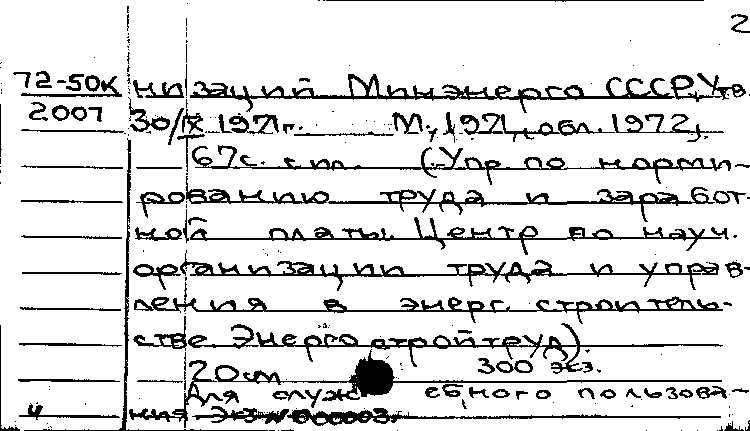 2
72-50к низаций Минэнерго СССР, Утв.
2007 30/IX 1971г. М., 1971, обл. 1972,
67с. с ил. (Упр по норми-
рованию труда и заработ-
ной платы. Центр по науч.
организации труда и управ-
ления в энерг. строитель-
стве. Энергостройтруд).
20см 300 экз.
Для служебного пользова-
4 ния Экз N 000003.